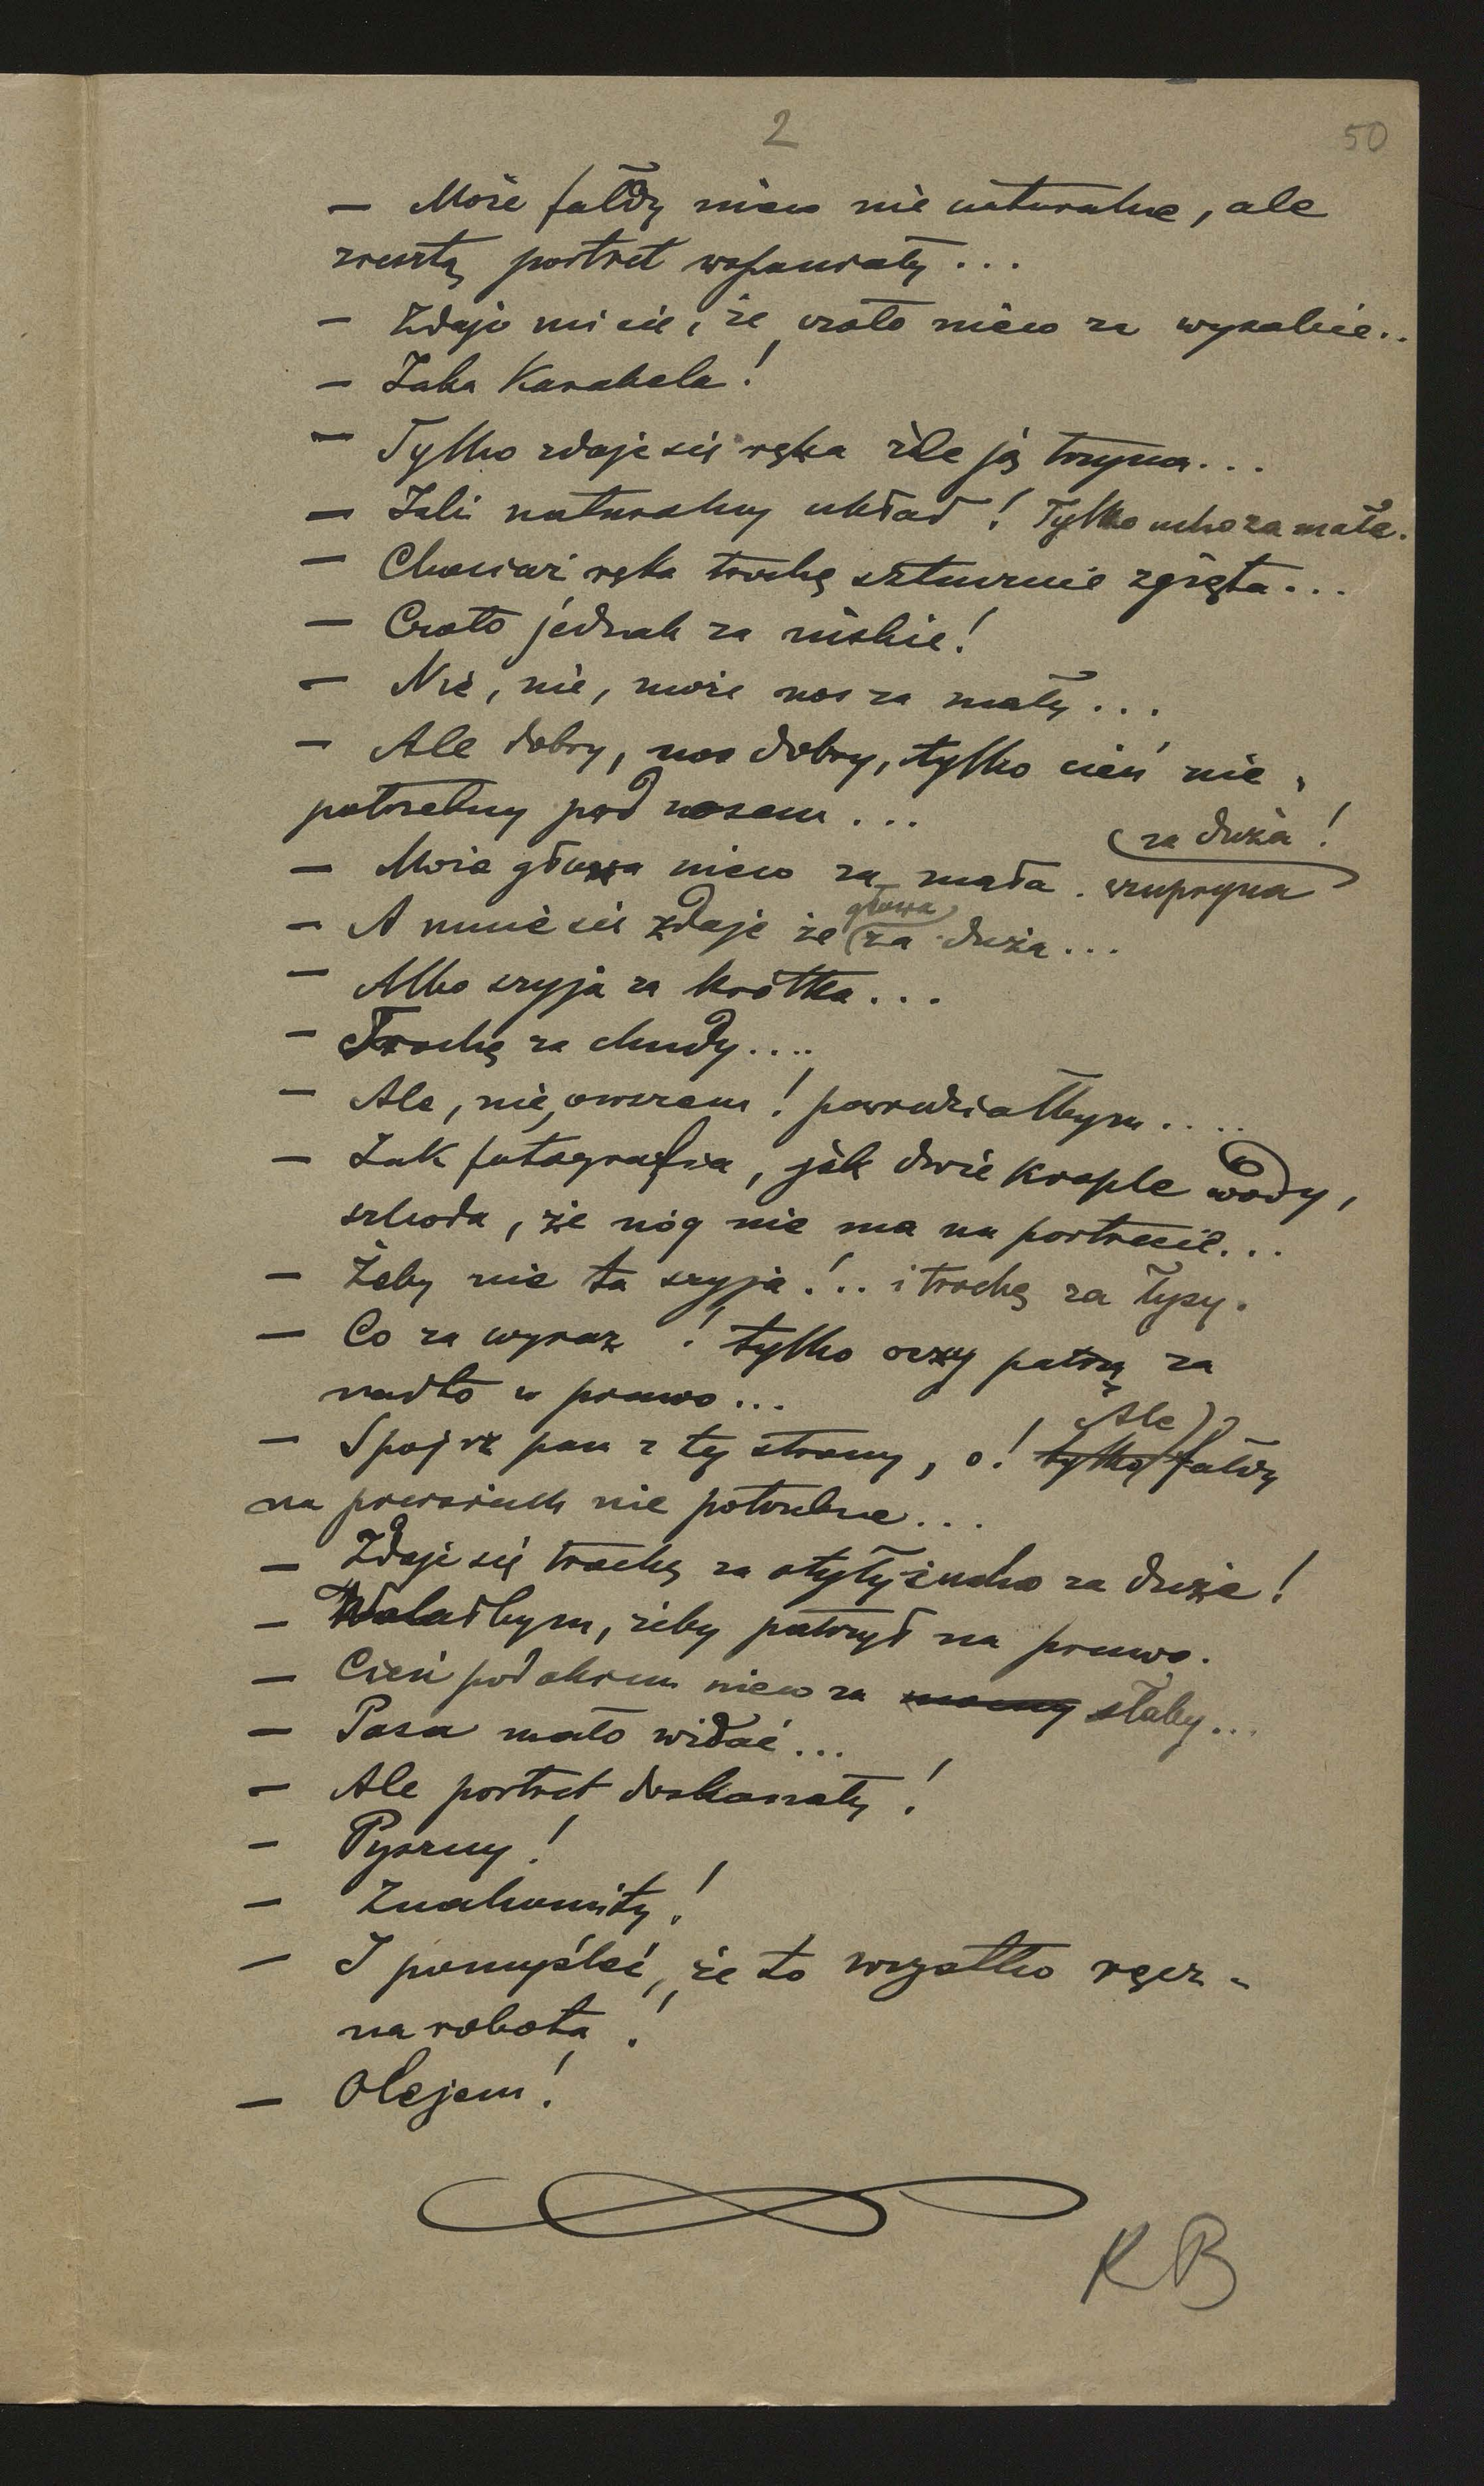 2
50
— Może fałdy nieco nie naturalne, ale
zresztą portret wspaniały...
— Zdaje mi się, że czoło nieco za wysokie..
— Jaka Karabela!
— Tylko zdaje się ręka źle ją trzyma...
— Jaki naturalny układ! Tylko ucho za małe.
— Chociaż ręka trochę sztucznie zgięta...
— Czoło jednak za niskie!
— Nie, nie, może nos za mały...
— Ale dobry, nos dobry, tylko cień nie-
potrzebny pod nosem...
za duża!
— Może głowa nieco za mała. czupryna
głowa
— A mnie się zdaje że za duża...
— Albo szyja za krótka...
— Trochę za chudy....
— Ale, nie, owszem! powiedziałbym....
— Jak fotografia, jak dwie krople wody,
szkoda, że nóg nie ma na portrecie...
— Żeby nie ta szyja!.. i trochę za łysy.
— Co za wyraz! tylko oczy patrzą za
nadto w prawo...
Ale
— Spojrz pan z tej strony, o! tylko fałdy
na piersiach nie potrzebne...
— Zdaje się trochę za otyły i ucho za duże!
— Wolałbym, żeby patrzył na prawo.
— Cień pod okiem nieco za mocny słaby...
— Pasa mało widać...
— Ale portret doskonały!
— Pyszny!
— Znakomity!
— I pomyśleć, że to wszystko ręcz-
na robota!
— Olejem!
KB